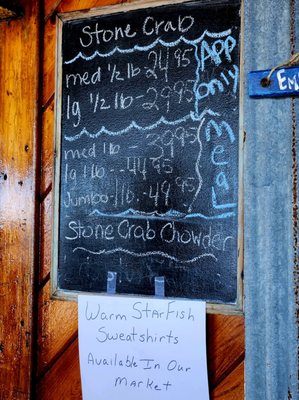 Stone Crab
med 1/2 lb 24.95
lg 1/2 lb - 29.95
App
only
med lb - 39.95
lg lb - - 44.95
Jumbo - lb. - 49.95
meal
Stone Crab Chowder
Warm Starfish
Sweatshirts
Available In Our
market
Em